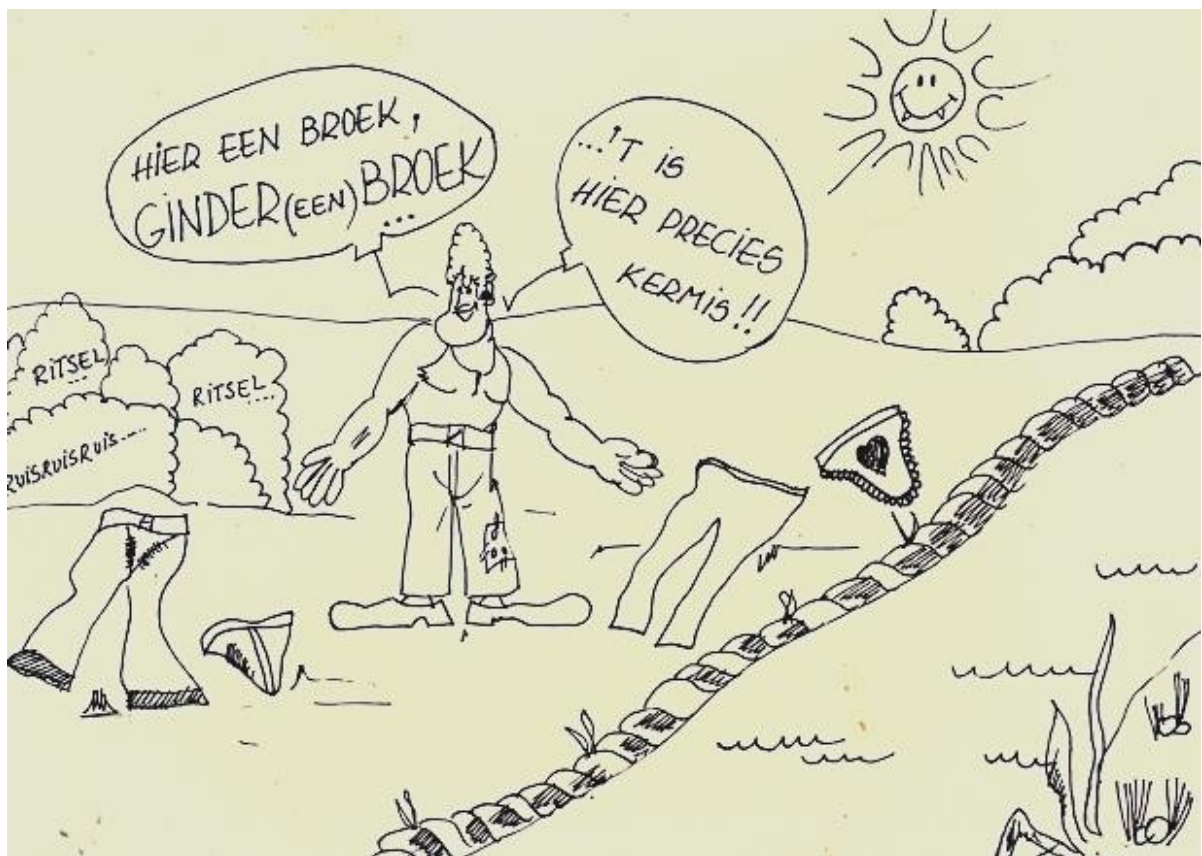 HIER EEN BROEK,
GINDER (EEN) BROEK
...
...'T IS
HIER PRECIES
KERMIS!!
RITSEL
....
RITSEL
....
RUISRUISRUIS.....